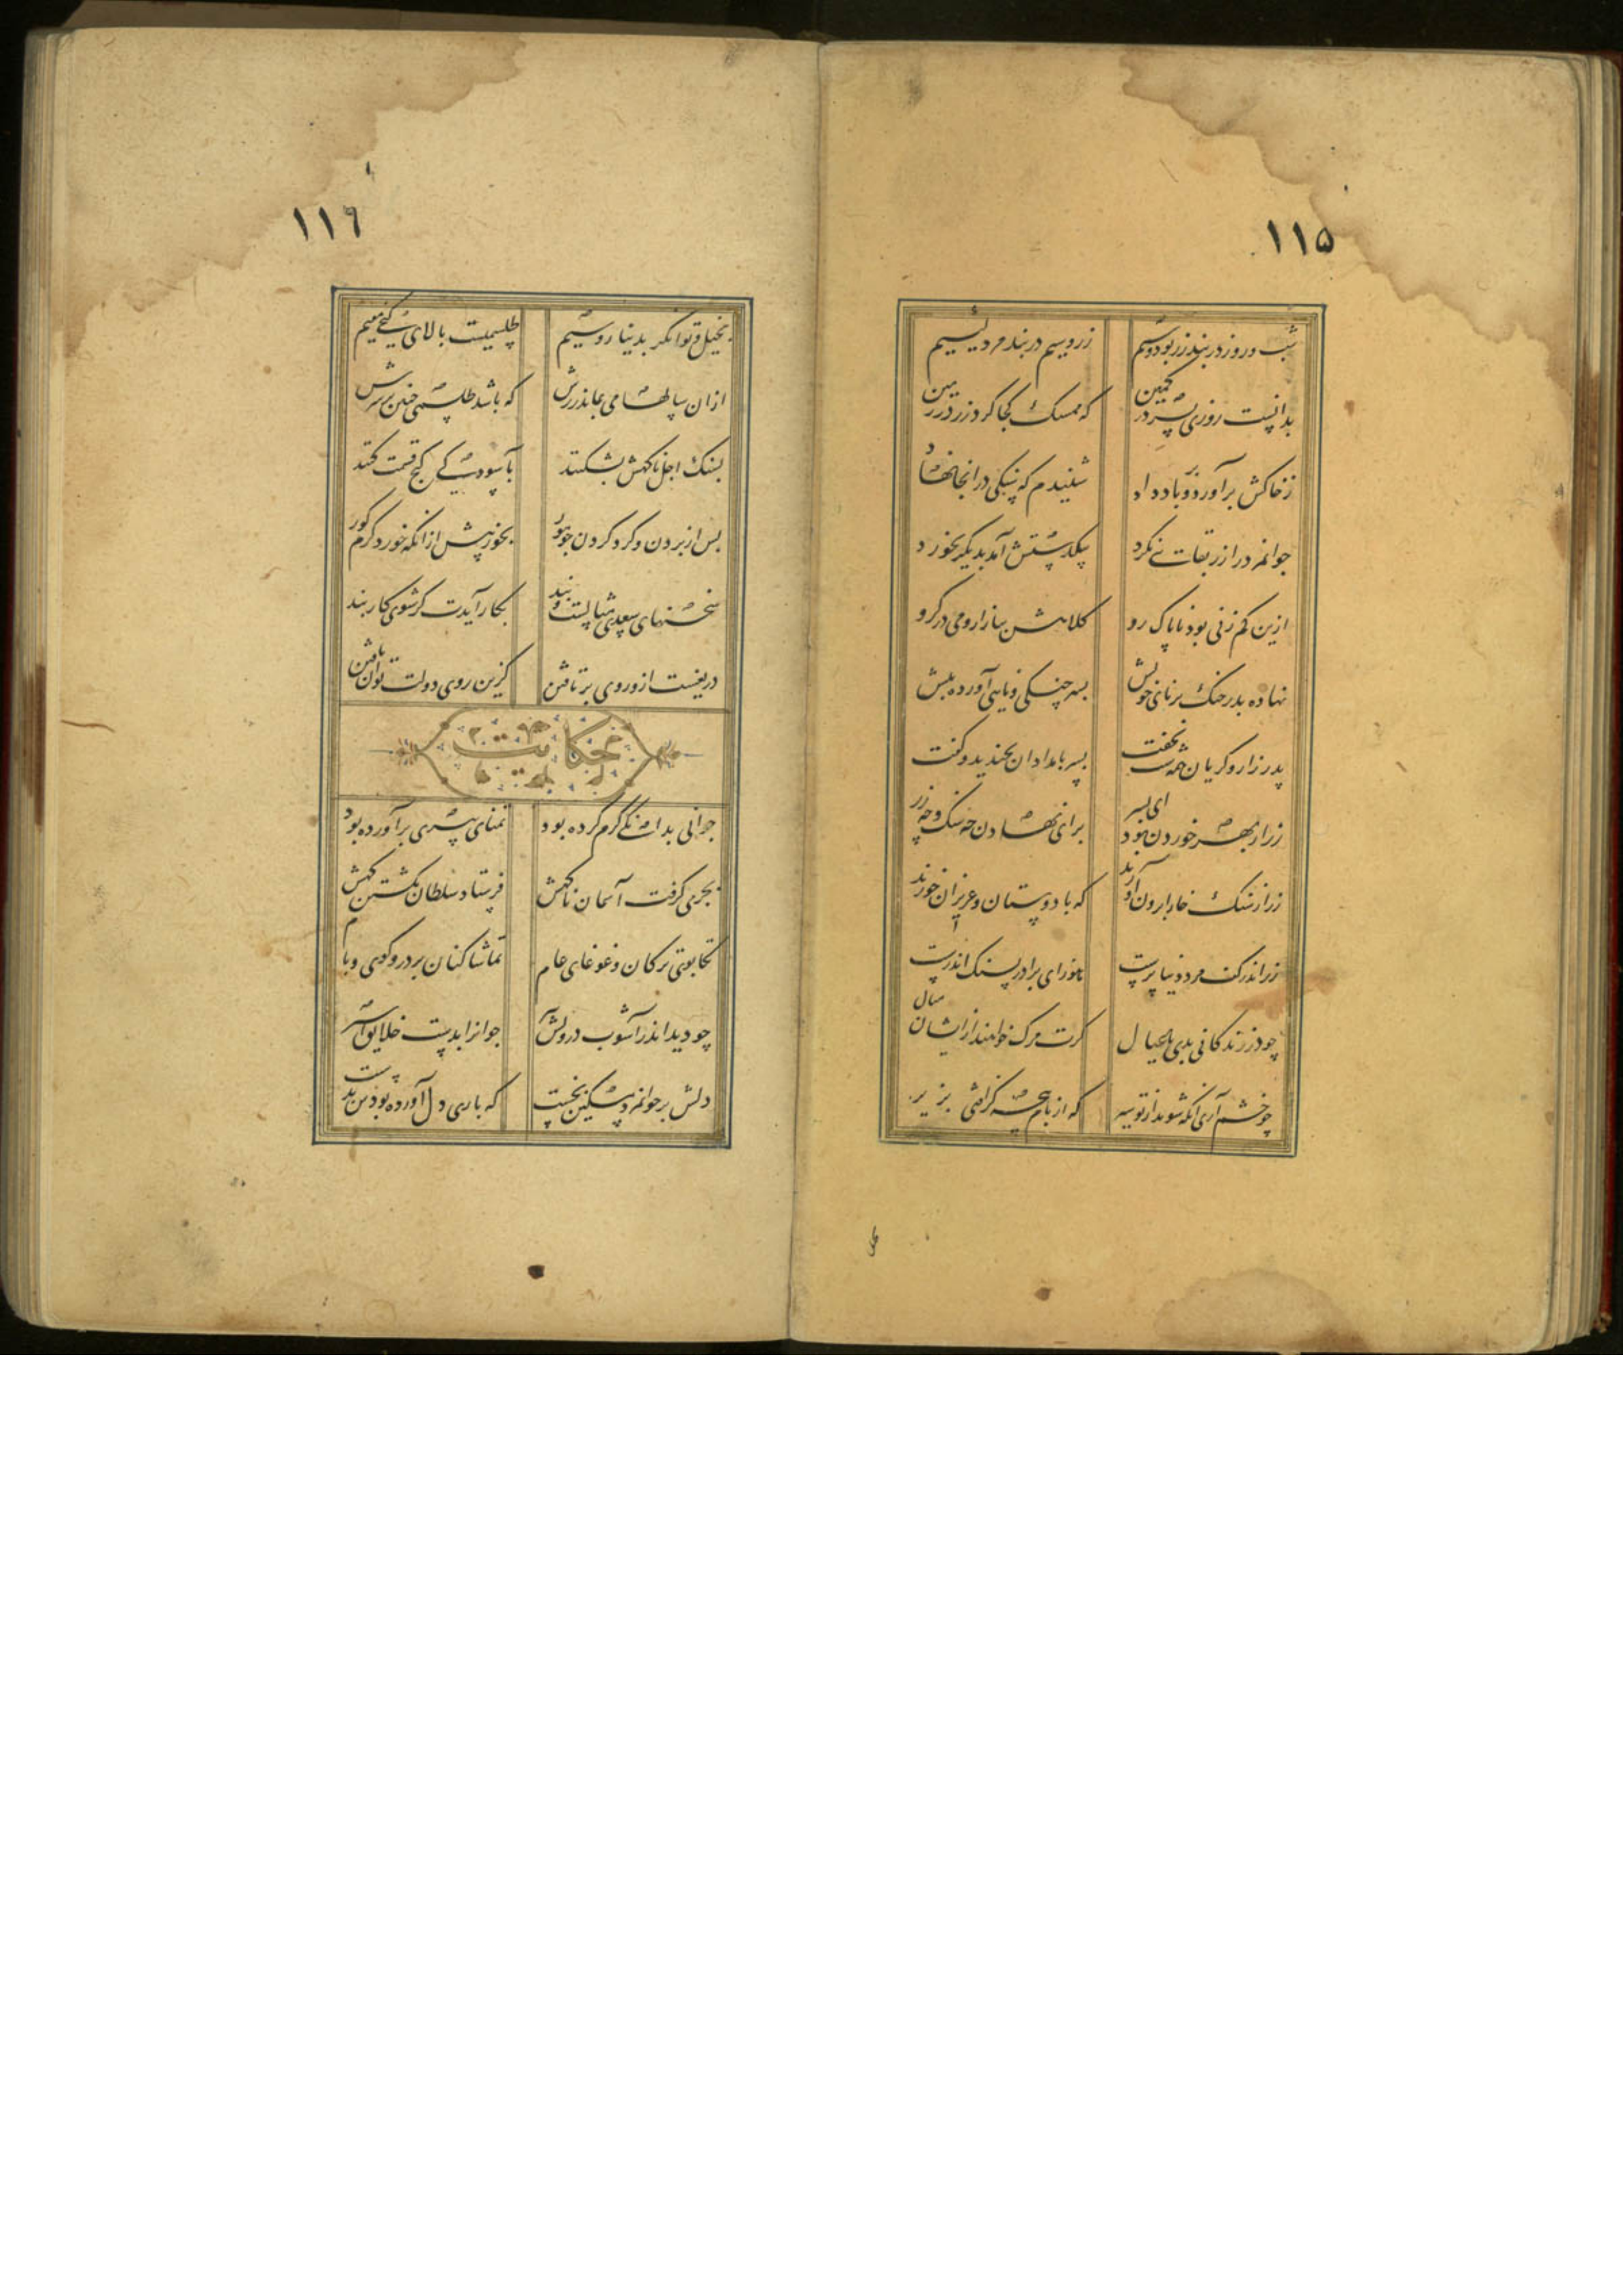 ۱۱۵
شب و روز در بند زر بود و سیم زر و سیم در بند مرد لئیم
بدانست روزی پسر در کمین که ممسک کجا کرد زر در زمین
ز خاکش برآورد و بر باد داد شنیدم که سنگی در انجا نهاد
جوانمرد را زر بقائی نکرد بیکدستش آمد بدیگر بخورد
ازین کم زنی بود ناپاک رو کلاهش ببازار و می در گرو
نهاده پدر چنگ بر نای خویش پسر چنگی و نایی آورده پیش
پدر زار و گریان همه شب نخفت پسر بامدادان بخندید و گفت
زر از بهر خوردن بود ای پسر برای نهادن چه سنک و چه زر
زر از سنک خارا برون آورند که با دوستان و عزیزان خورند
زر اندر کف مرد دنیا پرست هنوز ای برادر بسنک اندرست
چو در زندکانی بدی با عیال کرت مرک خواهند ازیشان منال
چو خشم آری آنکه شوند از تو سیر که از بام پنجه گز افتی بزیر
۱۱۶
بخیل توانکر بدینار و سیم طلسمیست بالای گنجی مقیم
از ان سالها می بماند زرش که باشد طلسمی چنین بر سرش
بسنک اجل ناکهش بشکنند بآسودگی گنج قسمت کنند
پس از بردن و کرد کردن چو مور بخور پیش از انکه خورد کرم کور
سخنهای سعدی مثالست و پند بکار آیدت کر شوی کاربند
دریغست ازو روی برتافتن کزین روی دولت توان یافتن
حکایت
جوانی بدانگی کرم کرده بود تمنای پیری برآورده بود
بجرمی کرفت آسمان ناکهش فرستاد سلطان بکشتن کهش
تکاپوی ترکان و غوغای عام تماشاکنان بر در و کوی و بام
چو دید اندر آشوب درویش پیر جوانرا بدست خلایق اسیر
دلش بر جوانمرد مسکین بخست که باری دل آورده بودش بدست